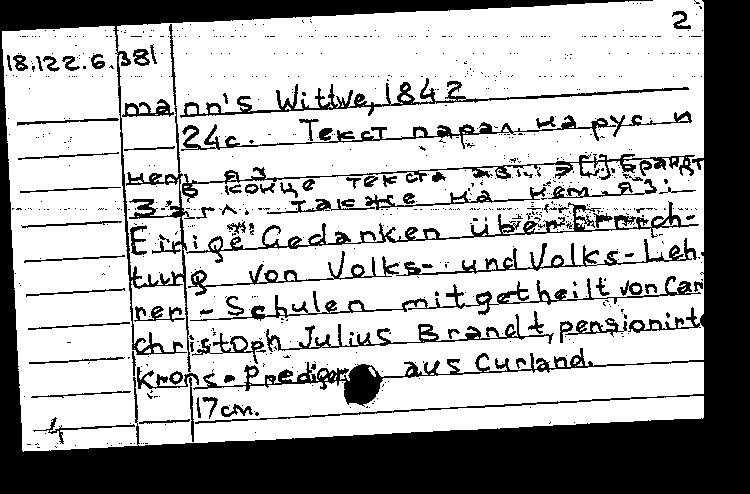 2
18.122.6.381
mann's Wittwe, 1842
24с. Текст парал. на рус. и
нем. яз.
В конце текста авт.: Э[].Брандт
Загл. также на нем. яз.:
Einige Gedanken über Errich-
tung von Volks- und Volks-Leh-
rer-Schulen mitgetheilt von Carl
christoph Julius Brandt, pensionirte
Krons-Prediger aus Curland.
17cm.
4